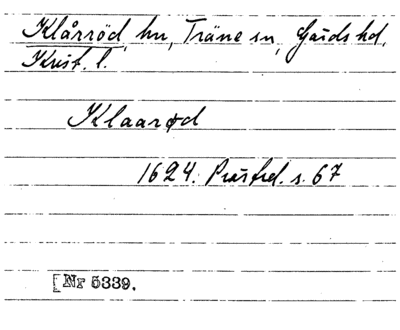 Klårröd hu, Träne sn, Gärds hd,
Krist. l.
Klaarød
1624. Prästrel. s. 67
[Nr 5339.